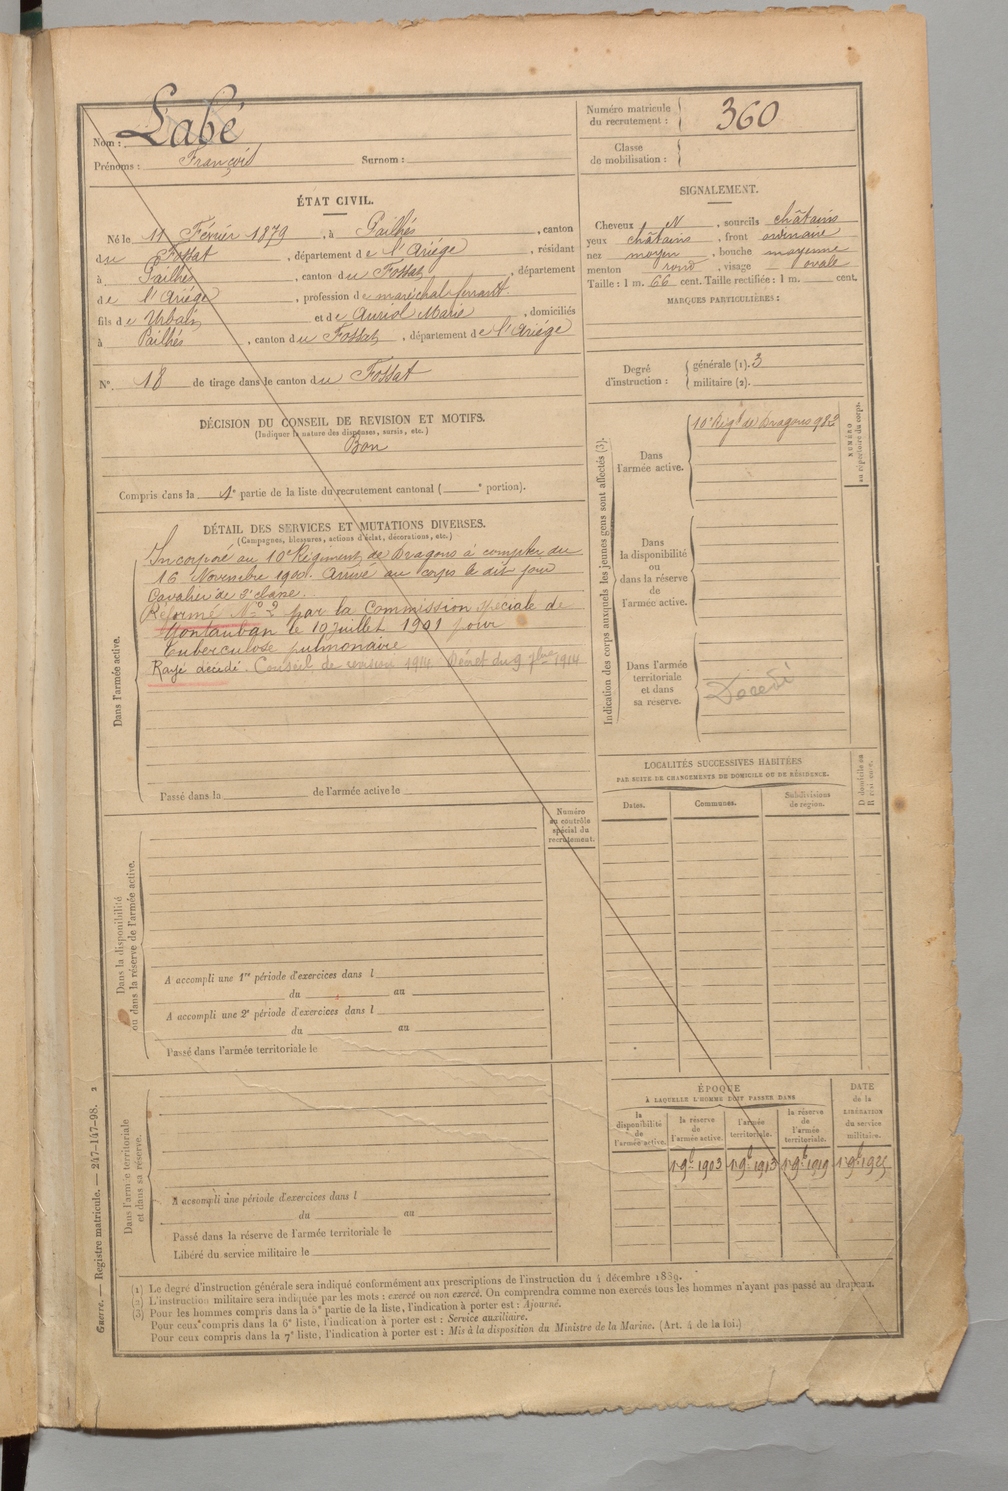 Nom : Labé
Prénoms : François Surnom :
Numéro matricule
du recrutement : 360
Classe
de mobilisation :
ÉTAT CIVIL.
Né le 11 Février 1879, à Pailhès, canton
du Fossat, département de l'Ariége, résidant
à Pailhès, canton du Fossat, département
de l'Ariége, profession de maréchal-ferrant.
fils de Urbain et de Auriol Marie, domiciliés
à Pailhès, canton du Fossat, département de l'Ariége
N° 18 de tirage dans le canton du Fossat
SIGNALEMENT.
Cheveux N, sourcils châtains
yeux châtains, front ordinaire
nez moyen, bouche moyenne
menton rond, visage ovale
Taille : 1 m. 66 cent. Taille rectifiée : 1 m. cent.
MARQUES PARTICULIÈRES :
Degré
d'instruction :
générale (1). 3
militaire (2).
DÉCISION DU CONSEIL DE REVISION ET MOTIFS.
(Indiquer la nature des dispenses, sursis, etc.)
Bon
Compris dans la 1e partie de la liste du recrutement cantonal ( e portion).
DÉTAIL DES SERVICES ET MUTATIONS DIVERSES.
(Campagnes, blessures, actions d'éclat, décorations, etc.)
Dans l'armée active.
Incorporé au 10e Régiment de Dragons à compter du
16 Novembre 1900. Arrivé au corps le dit jour
Cavalier de 2e classe.
Réformé N° 2 par la Commission spéciale de
Montauban le 10 juillet 1901 pour
tuberculose pulmonaire
Rayé décédé Conseil de revision 1914 Décret du 9 7bre 1914
Passé dans la de l'armée active le
Indication des corps auxquels les jeunes gens sont affectés (3).
NUMÉRO
au répertoire du corps.
Dans
l'armée active.
10e Régt de Dragons 982
Dans
la disponibilité
ou
dans la réserve
de
l'armée active.
Dans l'armée
territoriale
et dans
sa réserve.
Décédé
LOCALITÉS SUCCESSIVES HABITÉES
PAR SUITE DE CHANGEMENTS DE DOMICILE OU DE RÉSIDENCE.
Dates. Communes. Subdivisions
de région.
D. domicile ou
R. résidence.
Numéro
au contrôle
spécial du
recrutement.
Dans la disponibilité
ou dans la réserve de l'armée active.
A accompli une 1re période d'exercices dans l
du au
A accompli une 2e période d'exercices dans l
du au
Passé dans l'armée territoriale le
Dans l'armée territoriale
et dans sa réserve.
A accompli une période d'exercices dans l
du au
Passé dans la réserve de l'armée territoriale le
Libéré du service militaire le
ÉPOQUE
À LAQUELLE L'HOMME DOIT PASSER DANS
la
disponibilité
de
l'armée active.
la réserve
de
l'armée active.
l'armée
territoriale.
la réserve
de
l'armée
territoriale.
DATE
de la
LIBÉRATION
du service
militaire.
1er 9bre 1903 1er 9bre 1913 1er 9bre 1919 1er 9bre 1925
(1) Le degré d'instruction générale sera indiqué conformément aux prescriptions de l'instruction du 4 décembre 1889.
(2) L'instruction militaire sera indiquée par les mots : exercé ou non exercé. On comprendra comme non exercés tous les hommes n'ayant pas passé au drapeau.
(3) Pour les hommes compris dans la 5e partie de la liste, l'indication à porter est : Ajourné.
Pour ceux compris dans la 6e liste, l'indication à porter est : Service auxiliaire.
Pour ceux compris dans la 7e liste, l'indication à porter est : Mis à la disposition du Ministre de la Marine. (Art. 4 de la loi.)
Guerre. — Registre matricule. — 247-147-98. 2